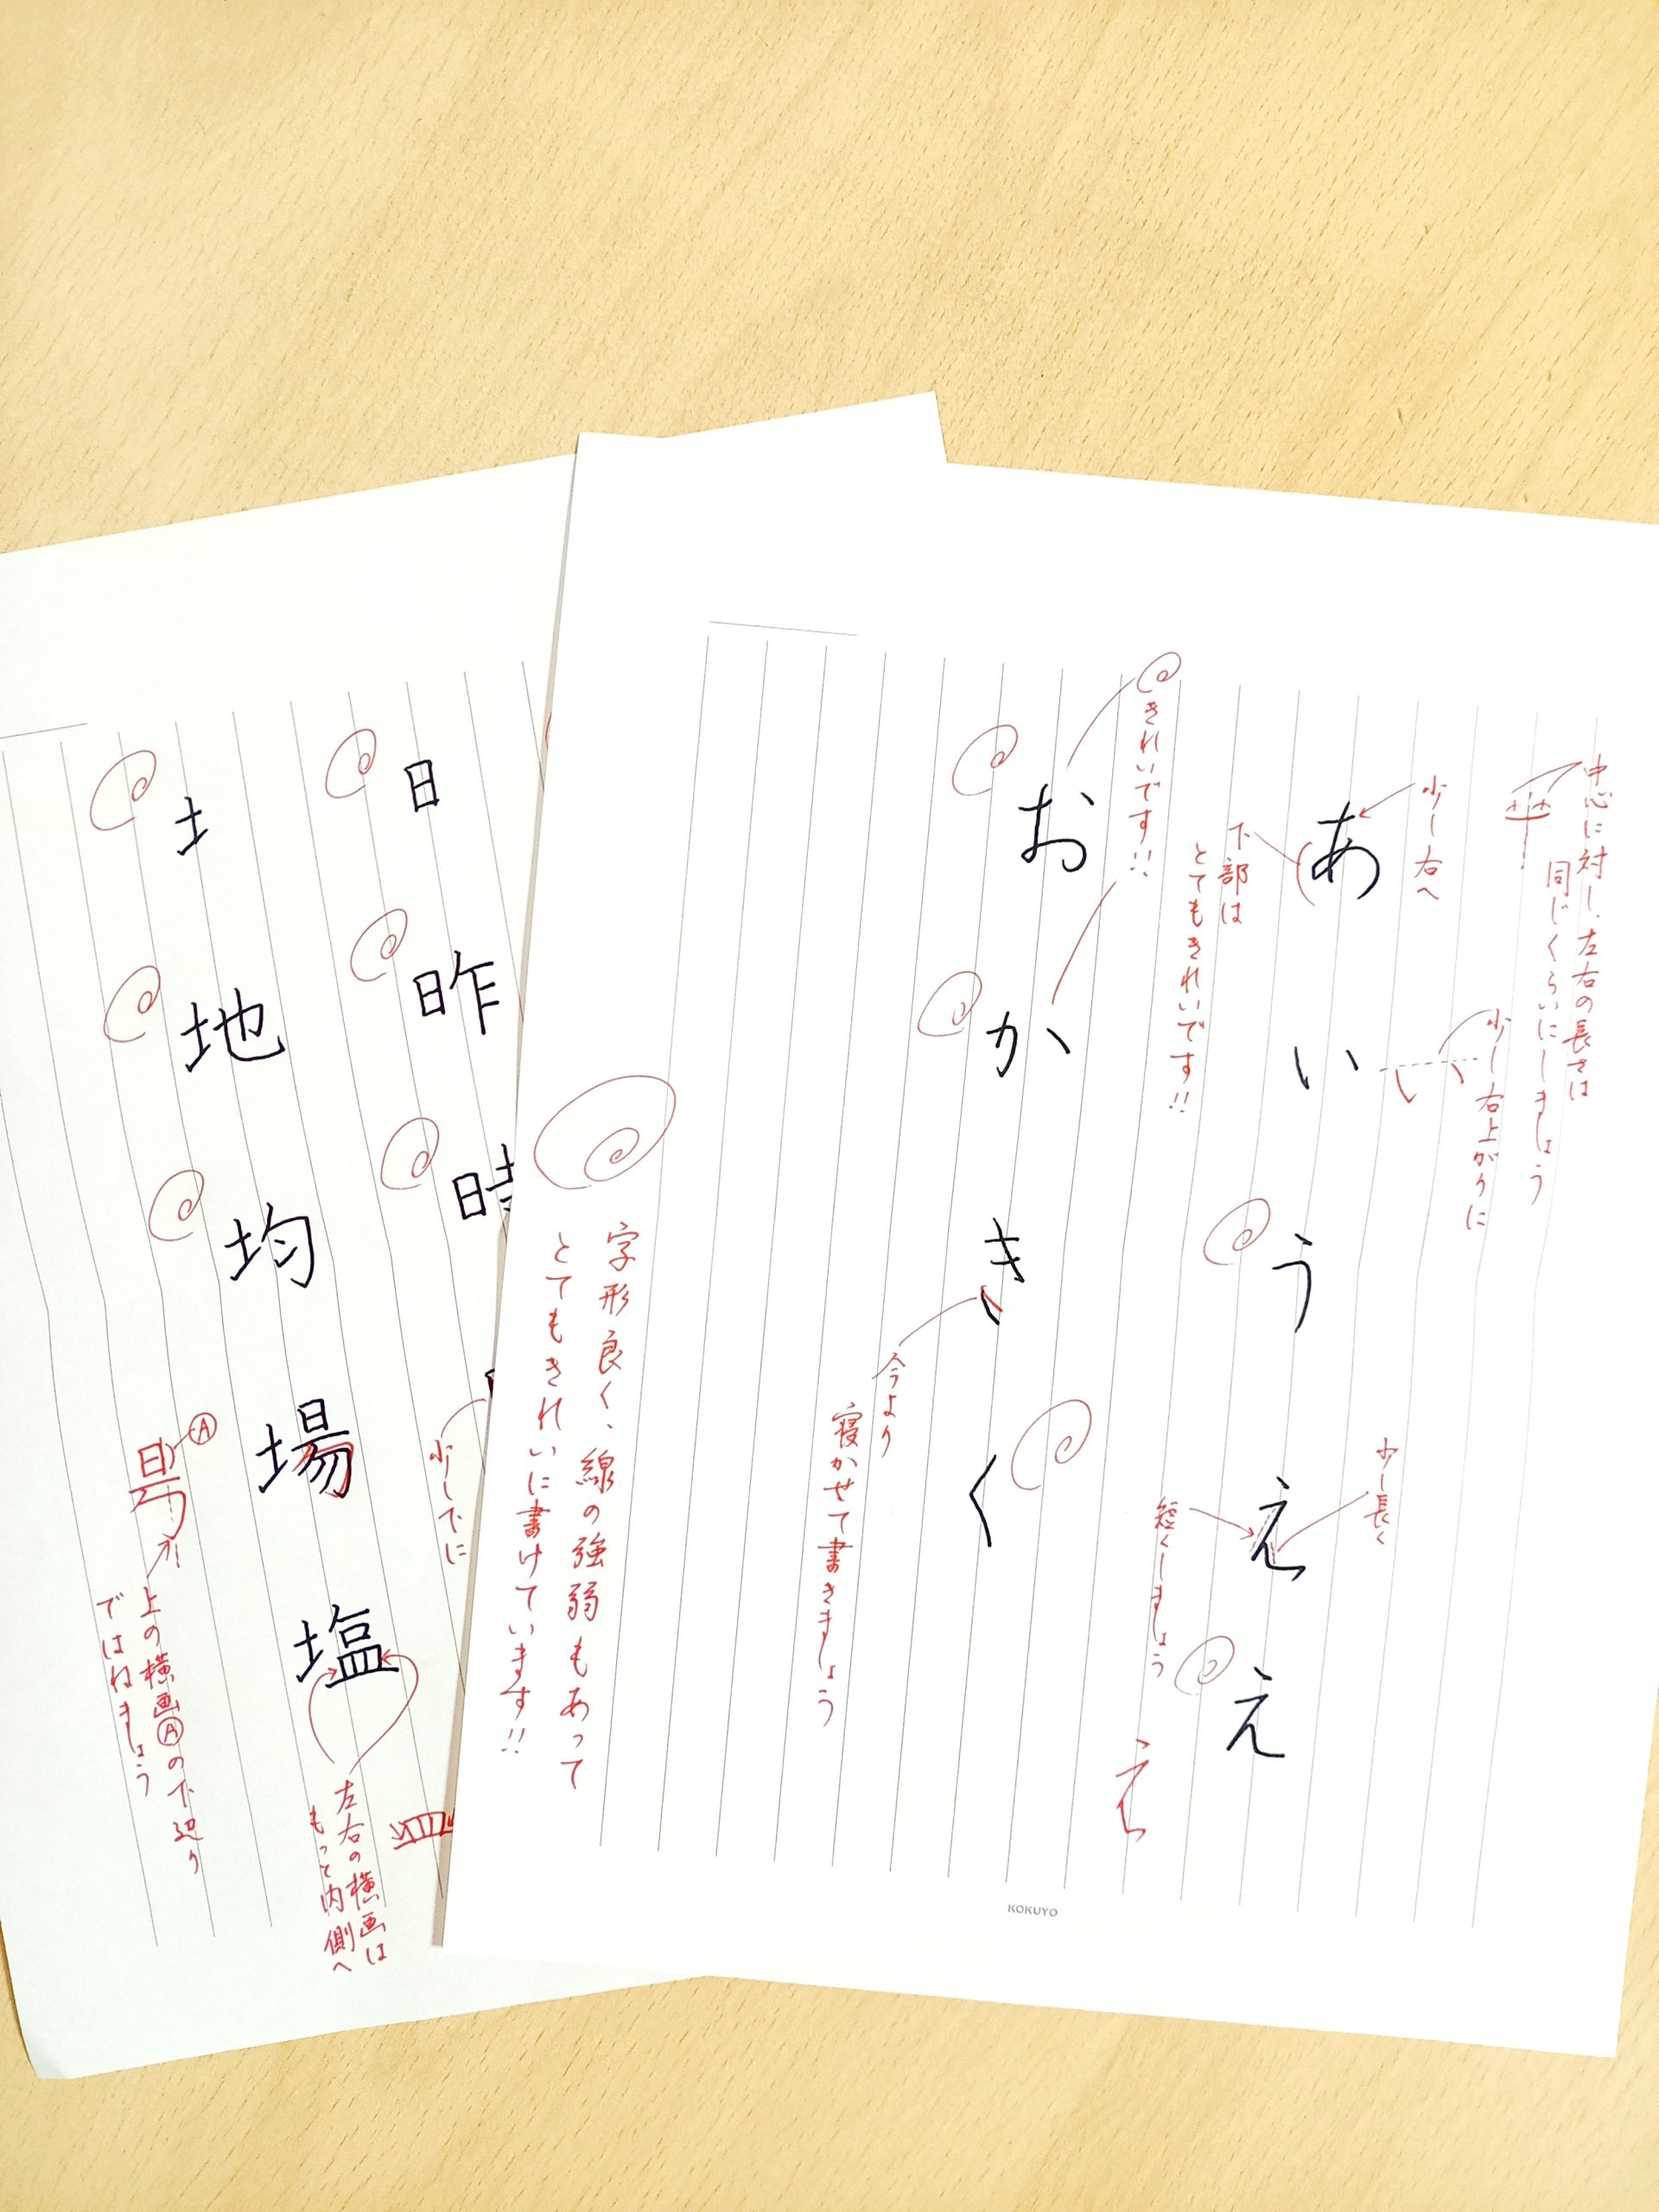 中心に対し、左右の長さは
同じくらいにしましょう
少し右へ
少し右上がりに
あ
い
う
え
え
下部は
とてもきれいです!!
少し長く
短くしましょう
え
きれいです!!
お
か
き
く
今より
寝かせて書きましょう
字形良く、線の強弱もあって
とてもきれいに書けています!!
KOKUYO
日
昨
時
少し下に
土
地
均
場
塩
A
上の横画Ⓐの下辺り
ではねましょう
左右の横画は
もっと内側へ